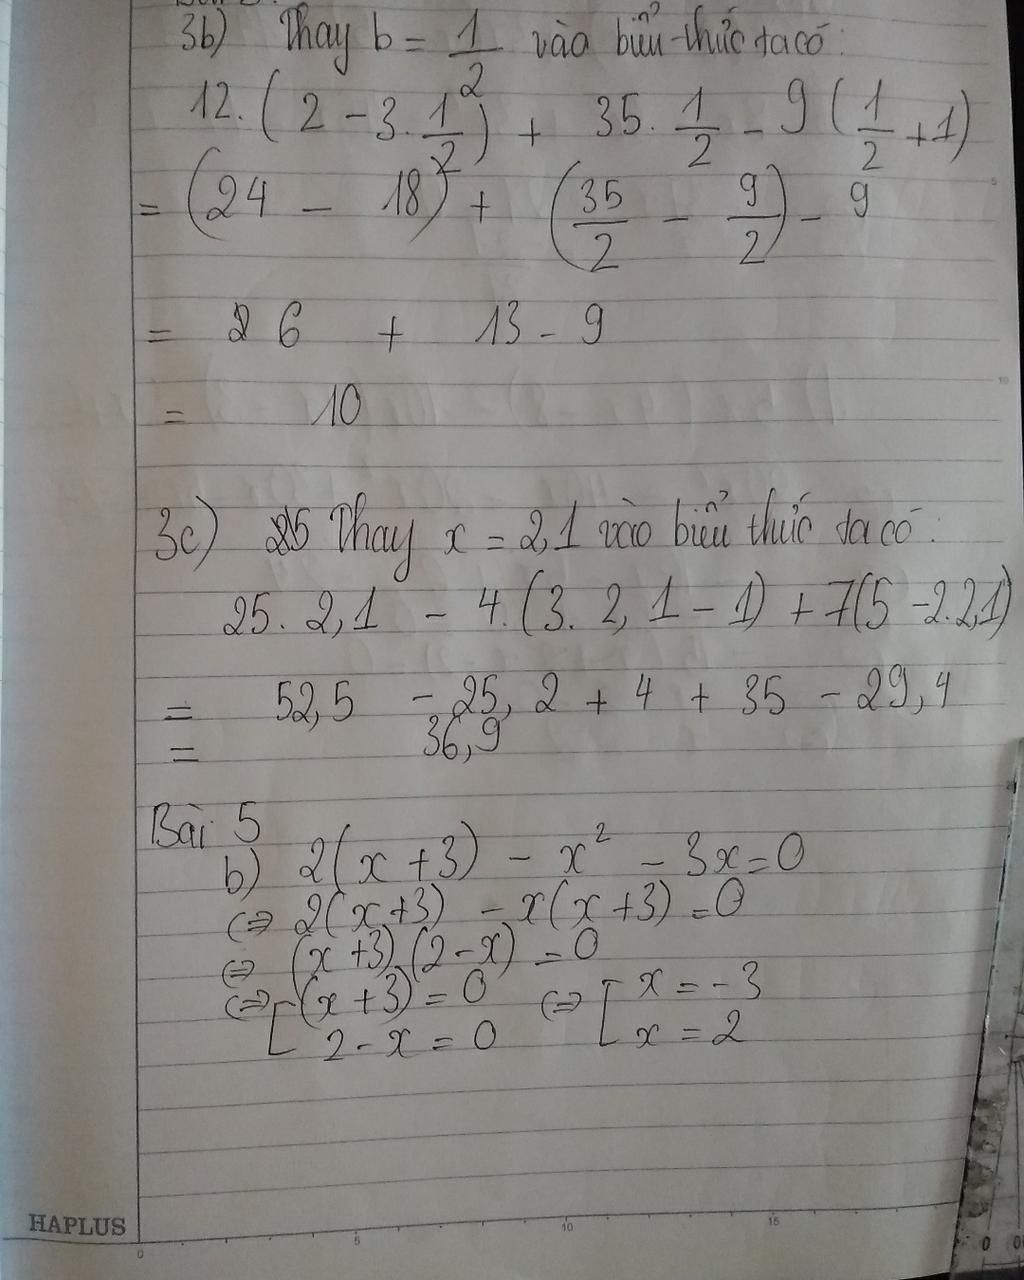 3b) Thay b = 1/2 vào biểu thức ta có:
12.(2 - 3.1/2)² + 35.1/2 - 9(1/2 + 1)
= (24 - 18)² + (35/2 - 9/2) - 9
= 6 + 13 - 9
= 10
3c) Thay x = 2,1 vào biểu thức ta có:
25. 2,1 - 4.(3. 2,1 - 1) + 7(5 - 2.2,1)
= 52,5 - 25,2 + 4 + 35 - 29,4
= 36,9
Bài 5
b) 2(x + 3) - x² - 3x = 0
<=> 2(x+3) - x(x+3) = 0
<=> (x+3)(2-x) = 0
<=> [ (x+3) = 0 <=> [ x = -3
2 - x = 0 x = 2
HAPLUS
0 5 10 15